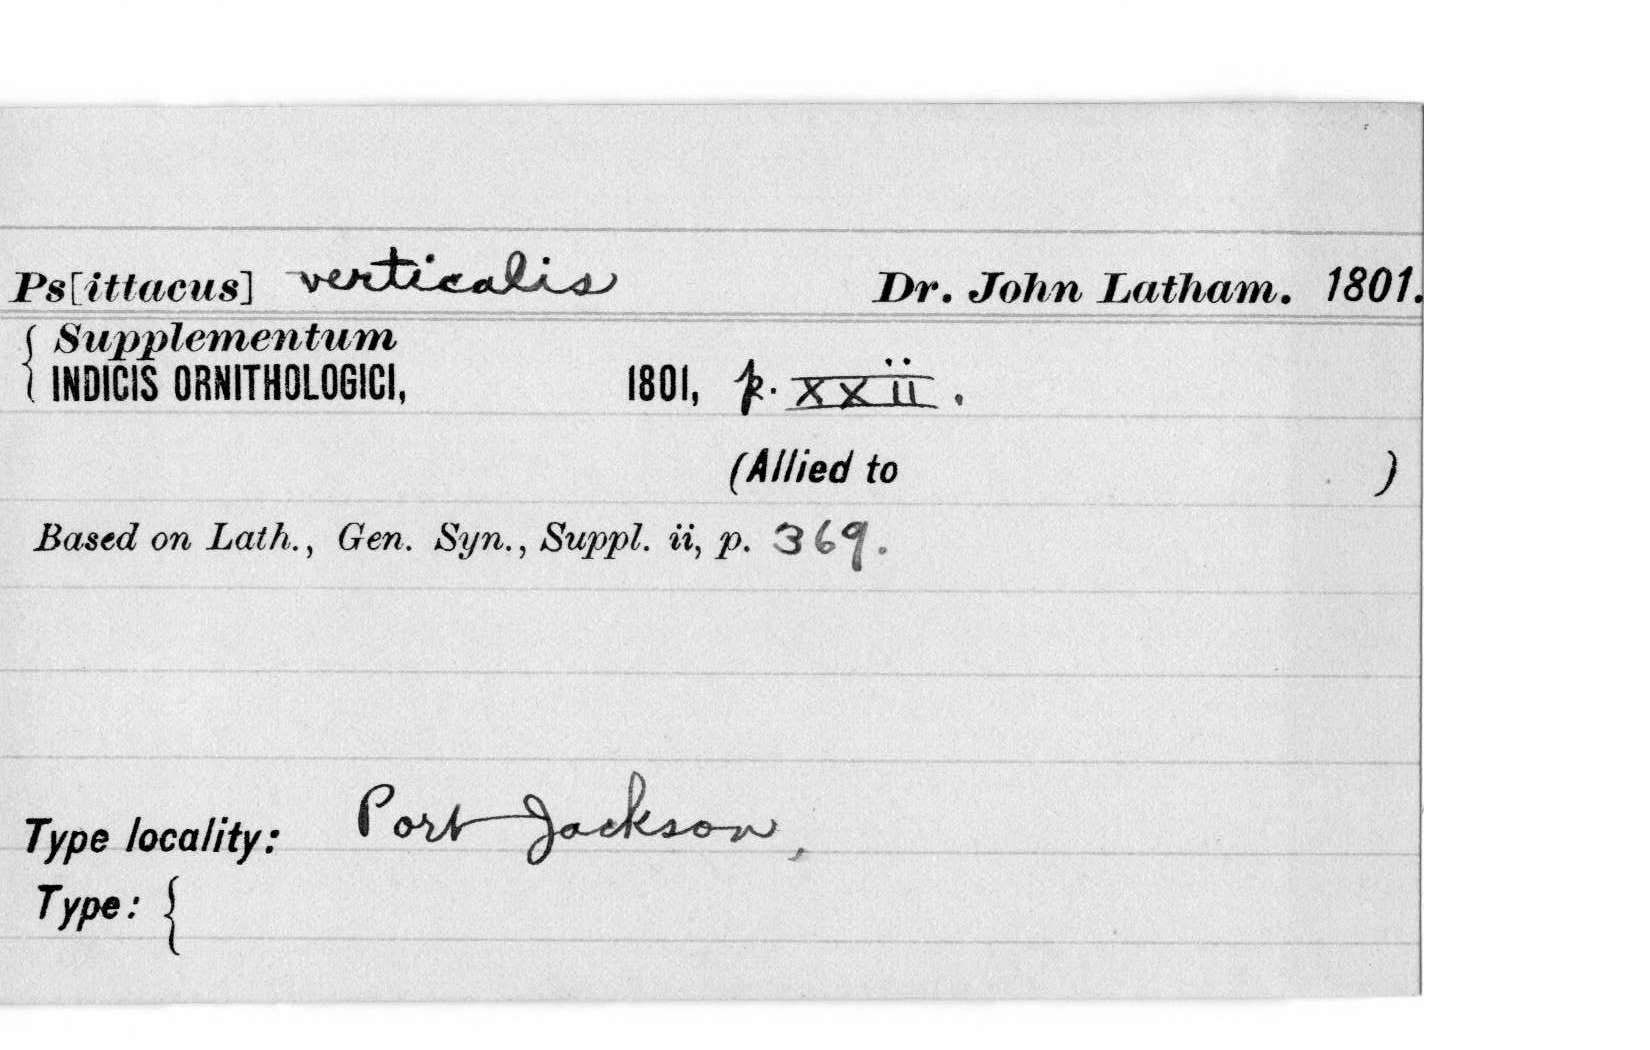 Ps[ittacus] verticalis Dr. John Latham. 1801.
{ Supplementum
INDICIS ORNITHOLOGICI, 1801, p. xxii.
(Allied to )
Based on Lath., Gen. Syn., Suppl. ii, p. 369.
Type locality: Port Jackson,
Type: {